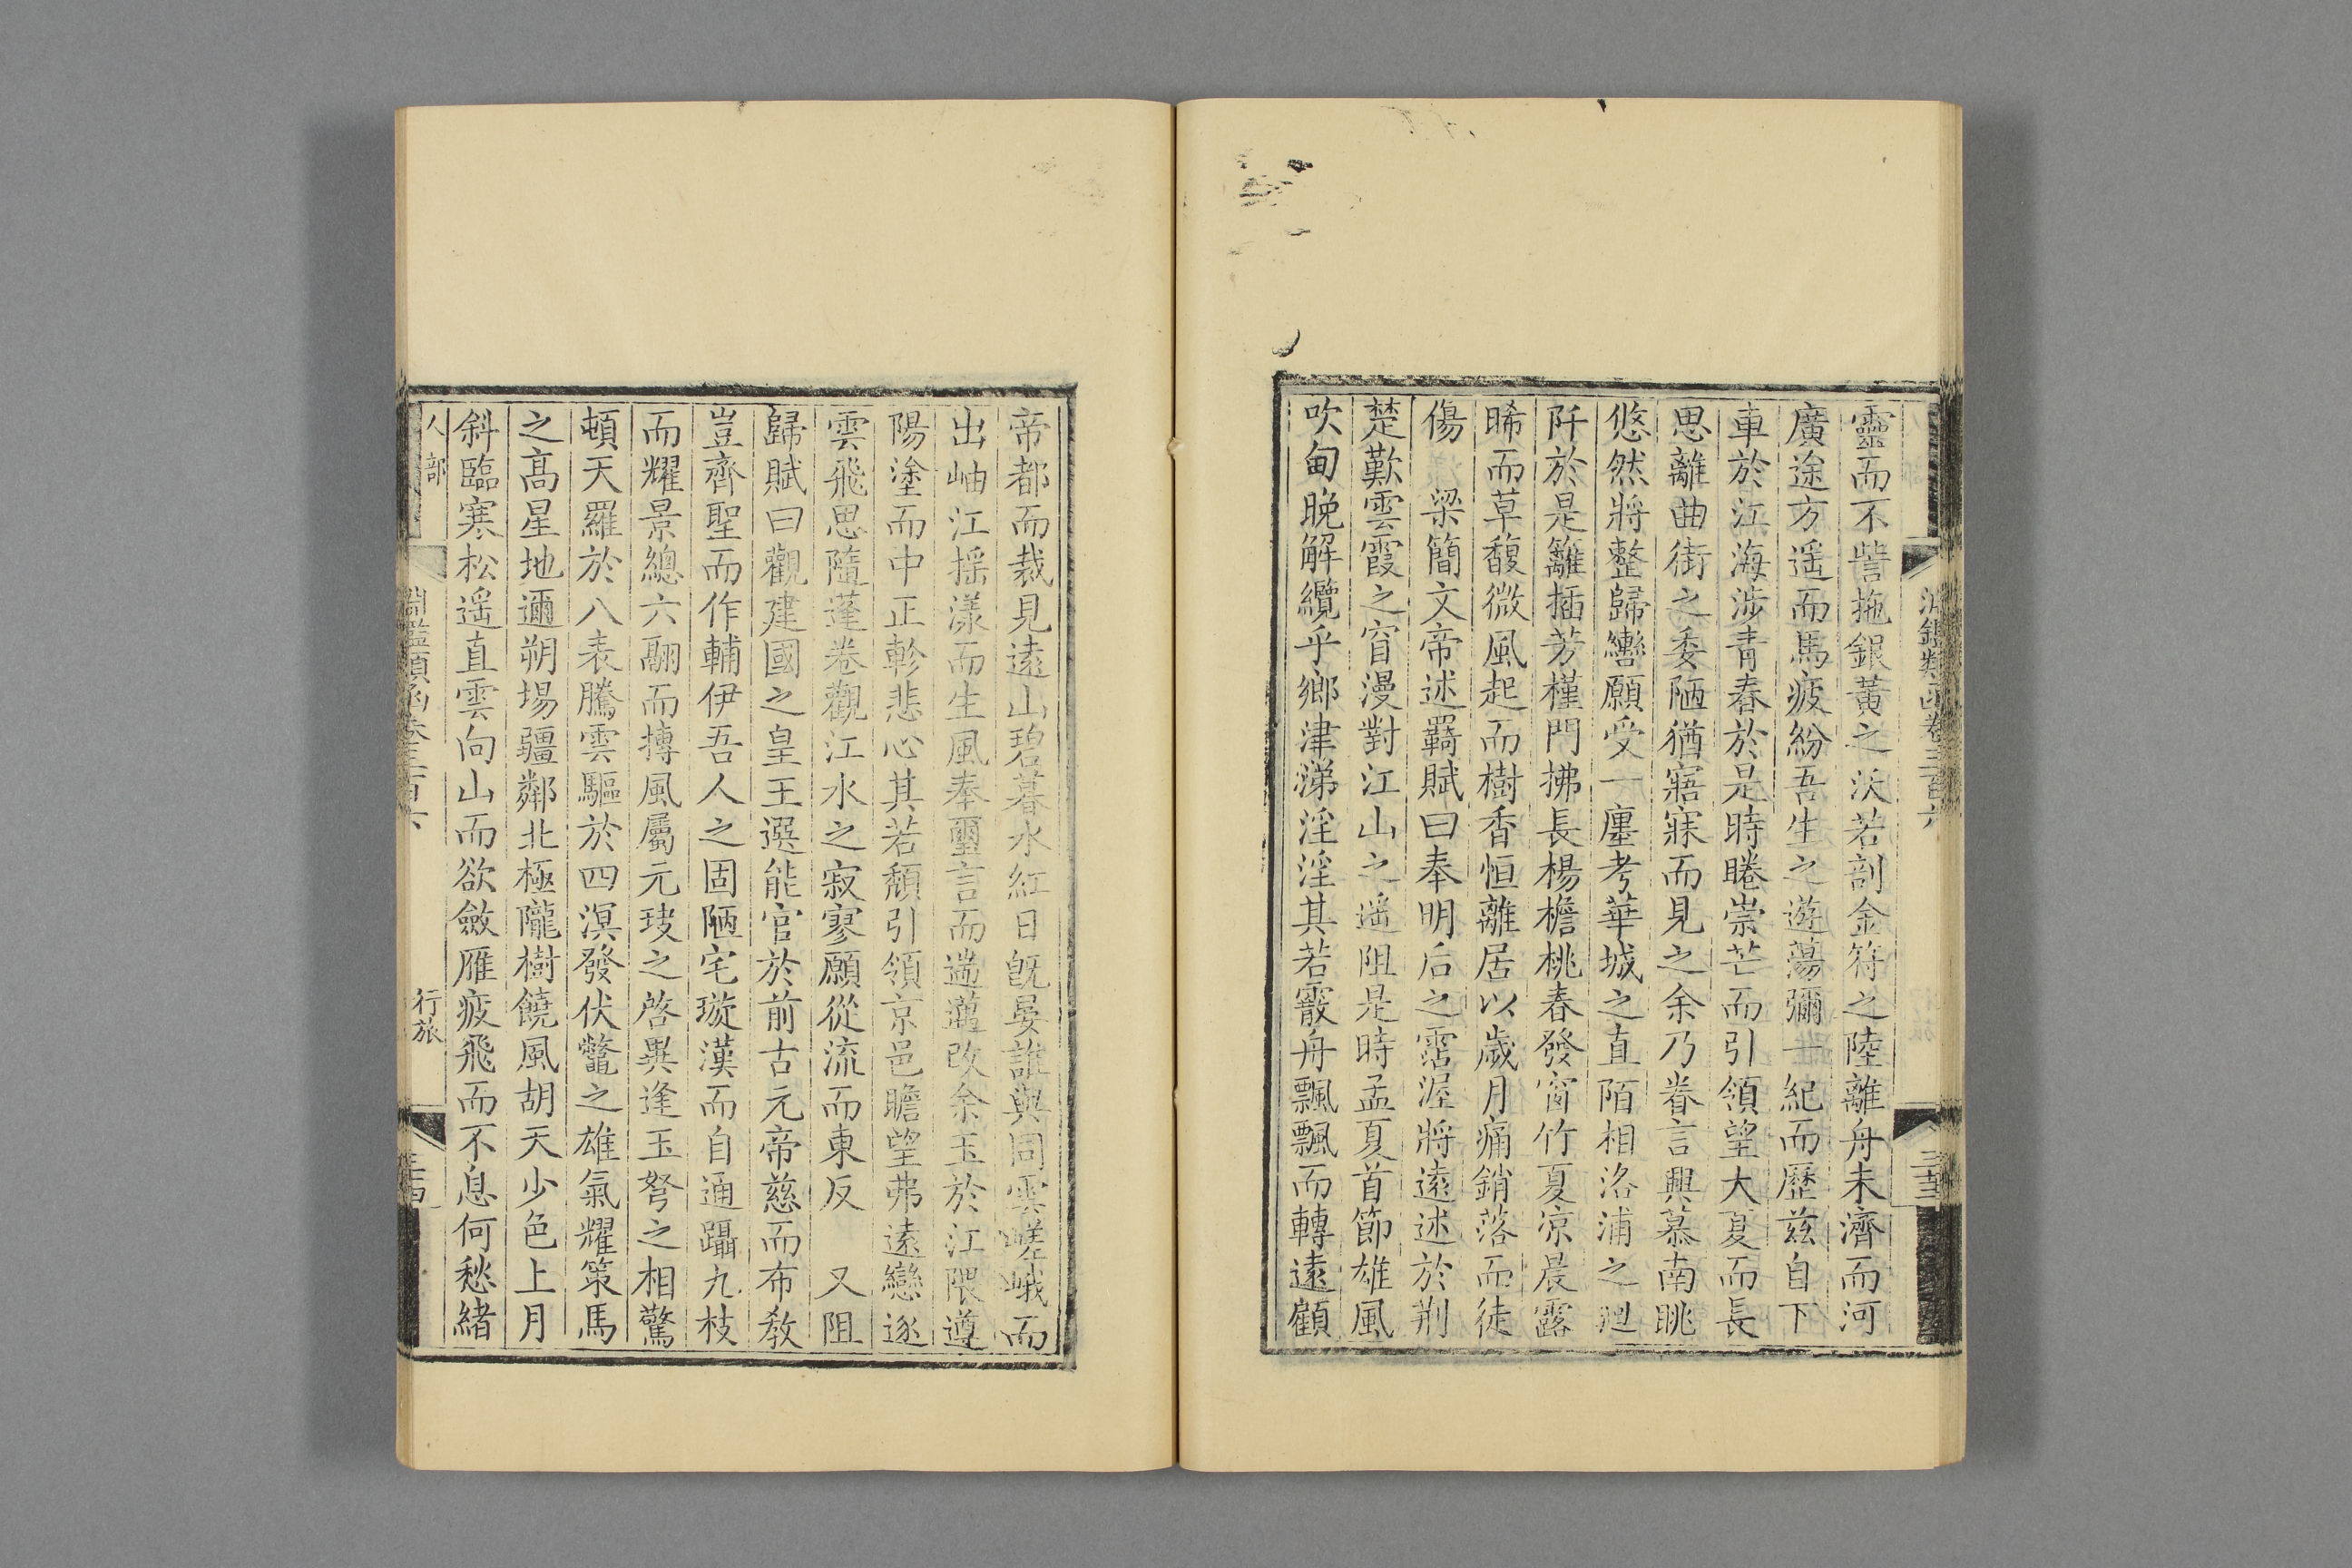 淵鑑類函卷三百六
三十三
靈而不訾拖銀黃之沃若剖金符之陸離舟未濟而河
廣途方遥而馬疲紛吾生之遊蕩彌一紀而歷茲自下
車於江海涉青春於是時睠崇芒而引領望大夏而長
思離曲街之委陋猶寤寐而見之余乃眷言興慕南眺
悠然將整歸轡願受一廛考華城之直陌相洛浦之廻
阡於是籬插芳槿門拂長楊檐桃春發窗竹夏凉晨露
晞而草馥微風起而樹香恒離居以歲月痛銷落而徒
傷 梁簡文帝述羈賦曰奉明后之霑渥將遠述於荆
楚歎雲霞之窅漫對江山之遥阻是時孟夏首節雄風
吹甸晚解纜乎鄉津涕淫淫其若霰舟飄飄而轉遠顧
帝都而裁見遠山碧暮水紅日旣晏誰與同雲嵯峨而
出岫江摇漾而生風奉璽言而遄邁改余玉於江隈遵
陽塗而中正軫悲心其若頽引領京邑瞻望弗遠戀逐
雲飛思隨蓬卷觀江水之寂寥願從流而東反 又阻
歸賦曰觀建國之皇王選能官於前古元帝慈而布教
豈齊聖而作輔伊吾人之固陋宅璇漢而自通躡九枝
而耀景總六翮而摶風屬元琁之啓異逢玉弩之相驚
頓天羅於八表騰雲驅於四溟發伏鼈之雄氣耀策馬
之高星地邇朔場疆鄰北極隴樹饒風胡天少色上月
斜臨寒松遥直雲向山而欲斂雁疲飛而不息何愁緒
人部
淵鑑類函卷三百六
行旅
三十四